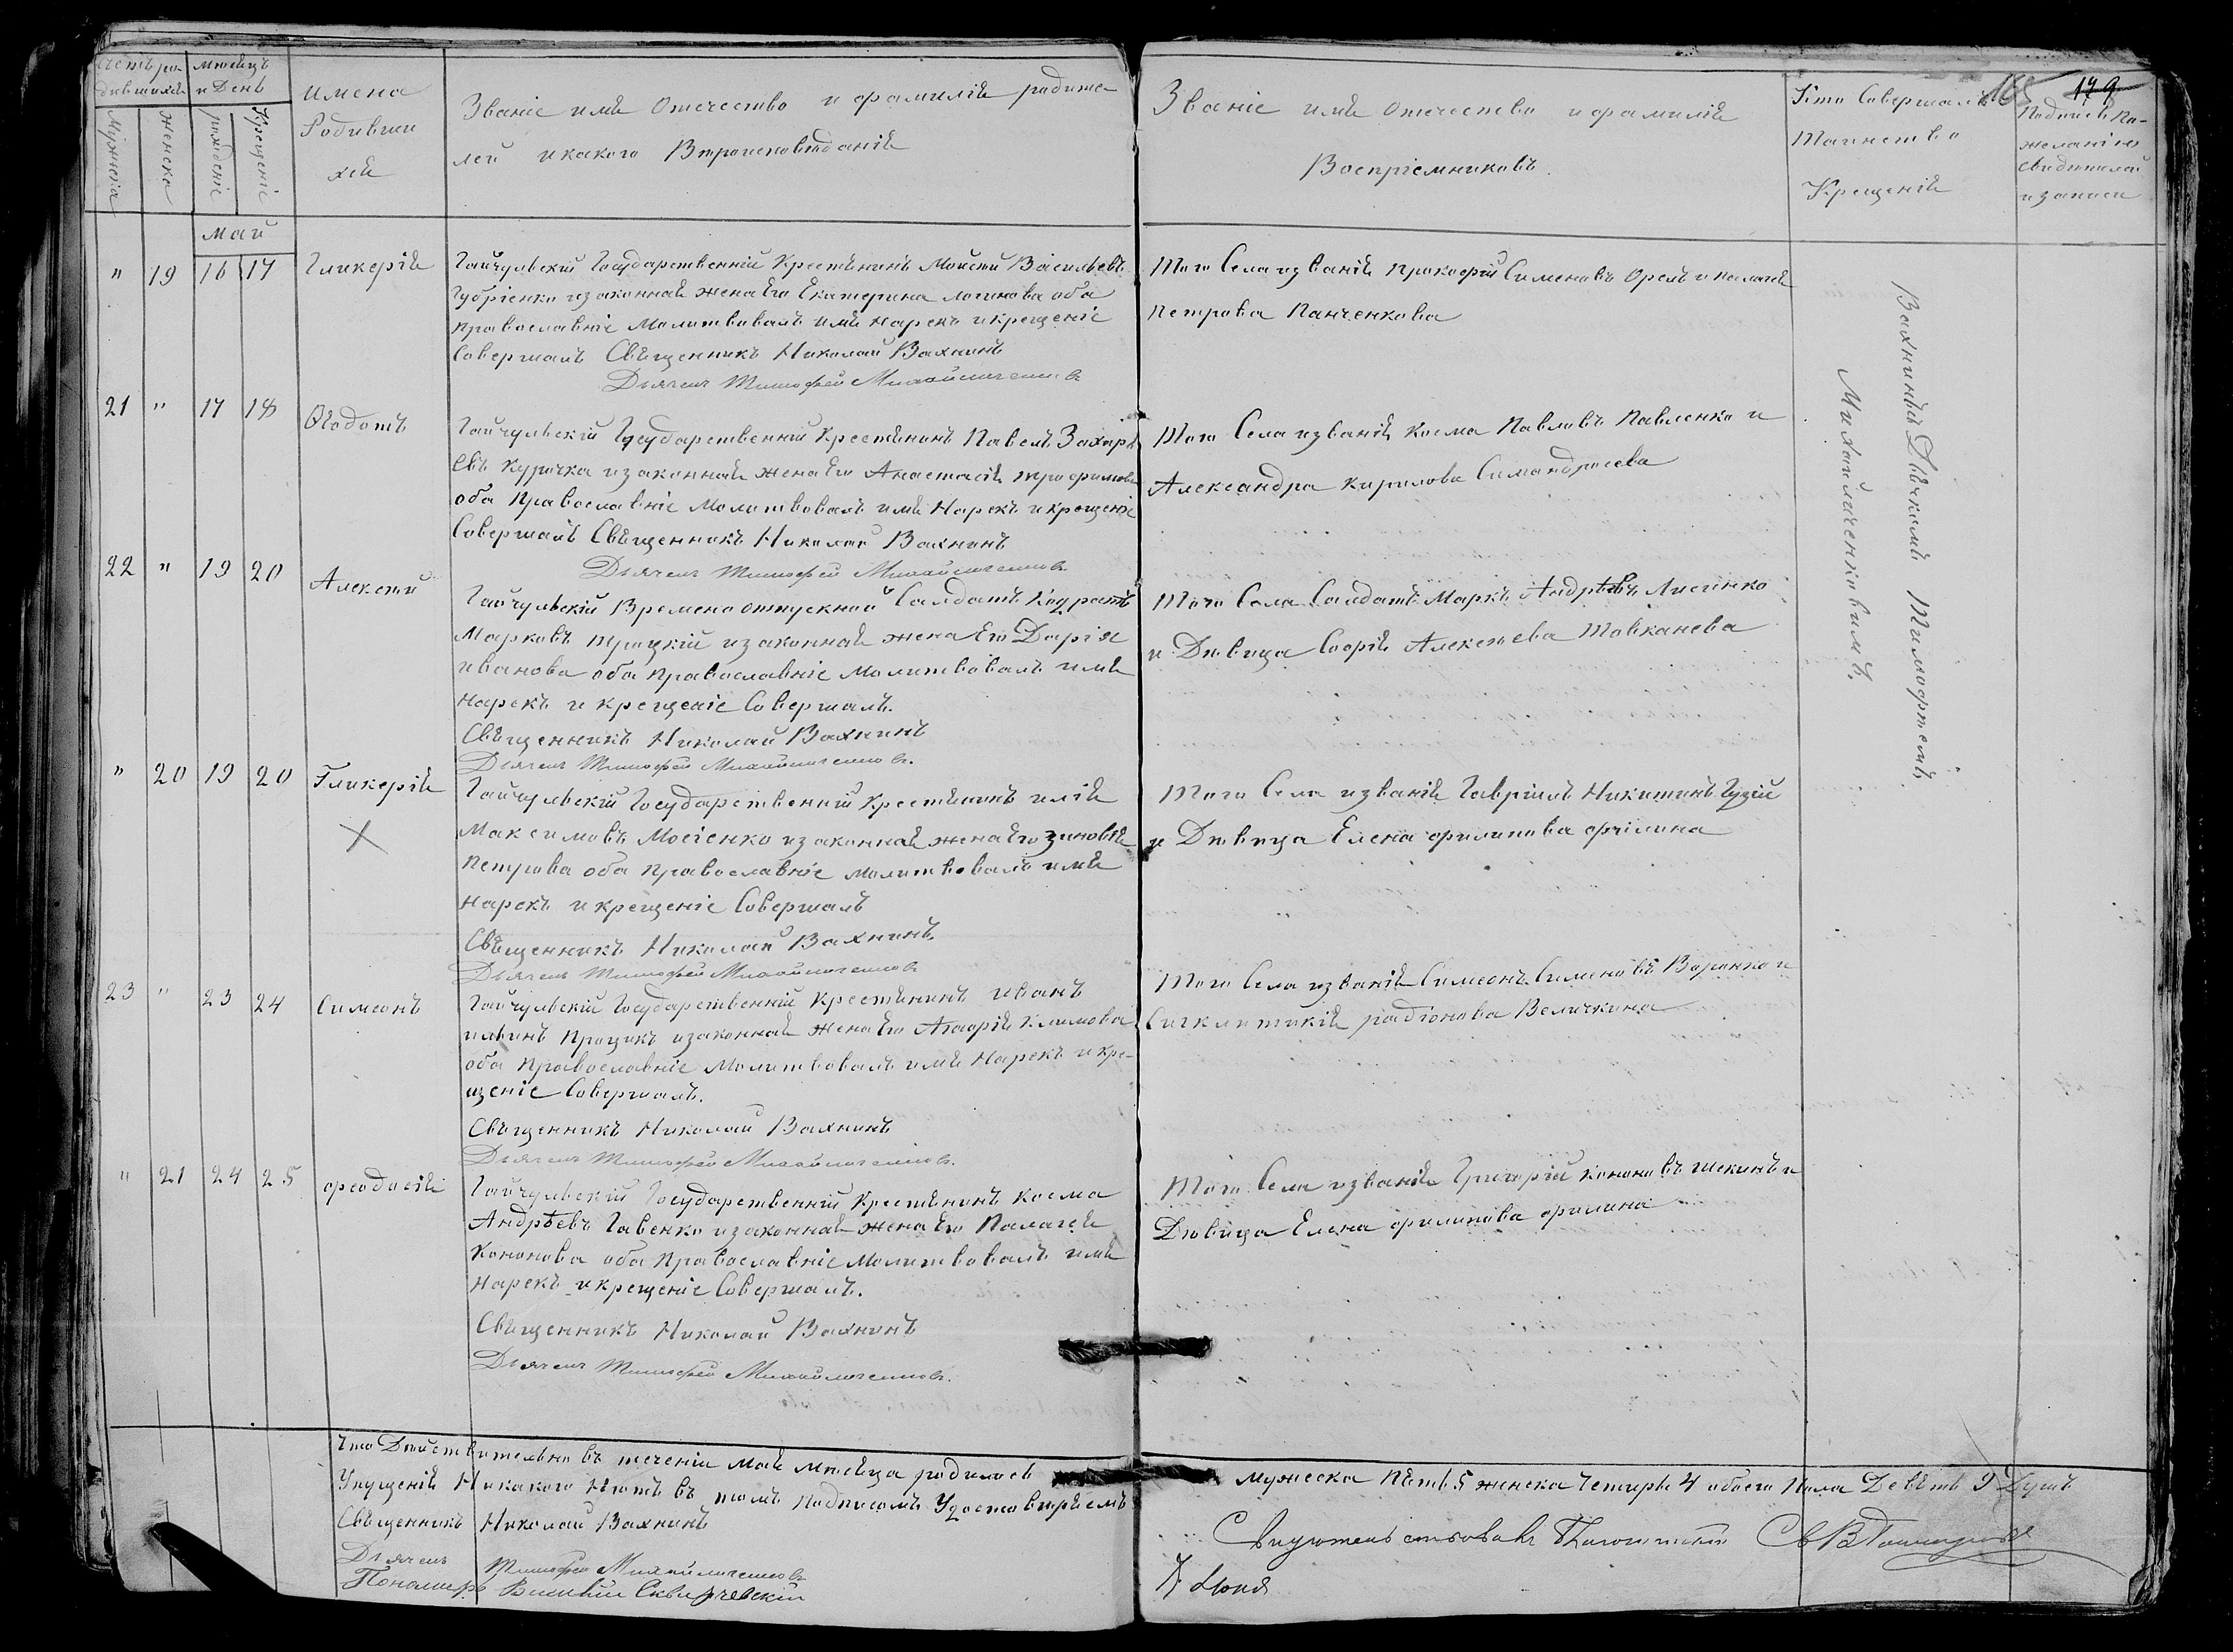 Счетъ ро-
дившихся
Мужеска
женска
месецъ
и День
рождение
Крещение
имена
Родивши
хся
Званіе имя Отечество и фамилія родите-
лей и какого Вероисповеданія
Званіе имя Отечество и фамилія
Воспріемниковъ.
Кто Совершалъ
Таинство
Крещенія
165 179
Подпись По-
желанію
свидетелей
и записи
май
" 19 16 17 Гликерія
Гайчульскій Государственній Крестянинъ Моисей Васильевъ
Губріенко изаконная жена Его Екатерина логинова оба
православніе Молитвовалъ имя нарекъ икрещеніе
Совершалъ Священникъ Николай Вахнинъ
Дьячекъ Тимофей Михайличенковъ
Того Села изванія прокофій Сименовъ Орелъ и палагея
петрова Панченкова
Вахнинъ Дьячкомъ Тимофтемъ
Михайличенковимъ.
21 " 17 18 Ѳеодотъ
Гайчульскій Государственній Крестянинъ Павелъ Захарь
Евъ Курочка изаконная жена Его Анастасія трофимова
оба Православніе Молитвовалъ имя Нарекъ икрещеніе
Совершалъ Священникъ Николай Вахнинъ
Дьячекъ Тимофей Михайличенковъ
Того Села изванія Косма Павловъ Павленко и
Александра Кирилова Симандросева
22 " 19 20 Алексей
Гайчульскій Временоотпускной Салдатъ Кодратъ
Марковъ троцкій изаконная жена Его Дарія
иванова оба православніе молитвовалъ имя
нарекъ и крещеніе Совершалъ.
Священникъ Николай Вахнинъ
Дьячекъ Тимофей Михайличенковъ.
Того Села Салдатъ Маркъ Андреевъ Лисенко
и Девица Софія Алексеева Товканева
" 20 19 20 Гликерія
Гайчульскій Государственній Крестянинъ илія
Максимовъ Мосіенко изаконная жена Его зиновія
петрова оба православніе молитвовалъ имя
нарекъ икрещеніе Совершалъ
Священникъ Николай Вахнинъ
Дьячекъ Тимофей Михайличенковъ
Того Села изванія Гавріилъ Никитинъ Гузій
и Девица Елена филипова філина
23 " 23 24 Симеонъ
Гайчульскій Государственній Крестянинъ иванъ
ильинъ Процикъ изаконная жена Его Агафія Климова
оба православніе Молитвовалъ имя Нарекъ икре-
щеніе Совершалъ.
Священникъ Николай Вахнинъ
Дьячекъ Тимофей Михайличенковъ.
Того Села изванія Симеонъ Сименовъ Воронко и
Сигклитикія радіонова Величкина
" 21 24 25 феодосія
Гайчульскій Государственній Крестянинъ Косма
Андреевъ Гавенко изаконная жена Его Палагея
Кононова оба Православніе Молитвовалъ имя
Нарекъ икрещеніе Совершалъ.
Священникъ Николай Вахнинъ
Дьячекъ Тимофей Михайличенковъ.
Того Села изванія Григорій кононовъ шекинъ и
Девица Елена филипова филина
Что Действительно въ теченіи мая месяца родилось
мужеска Пять 5 женска Четыре 4 обоего Пола Девять 9 Душъ
Упущенія Никакого Нетъ въ томъ подписомъ Удостовиряемъ
Священникъ Николай Вахнинъ
Дьячекъ Тимофей Михайличенковъ
Пономарь
Свидетельствовалъ
Июня